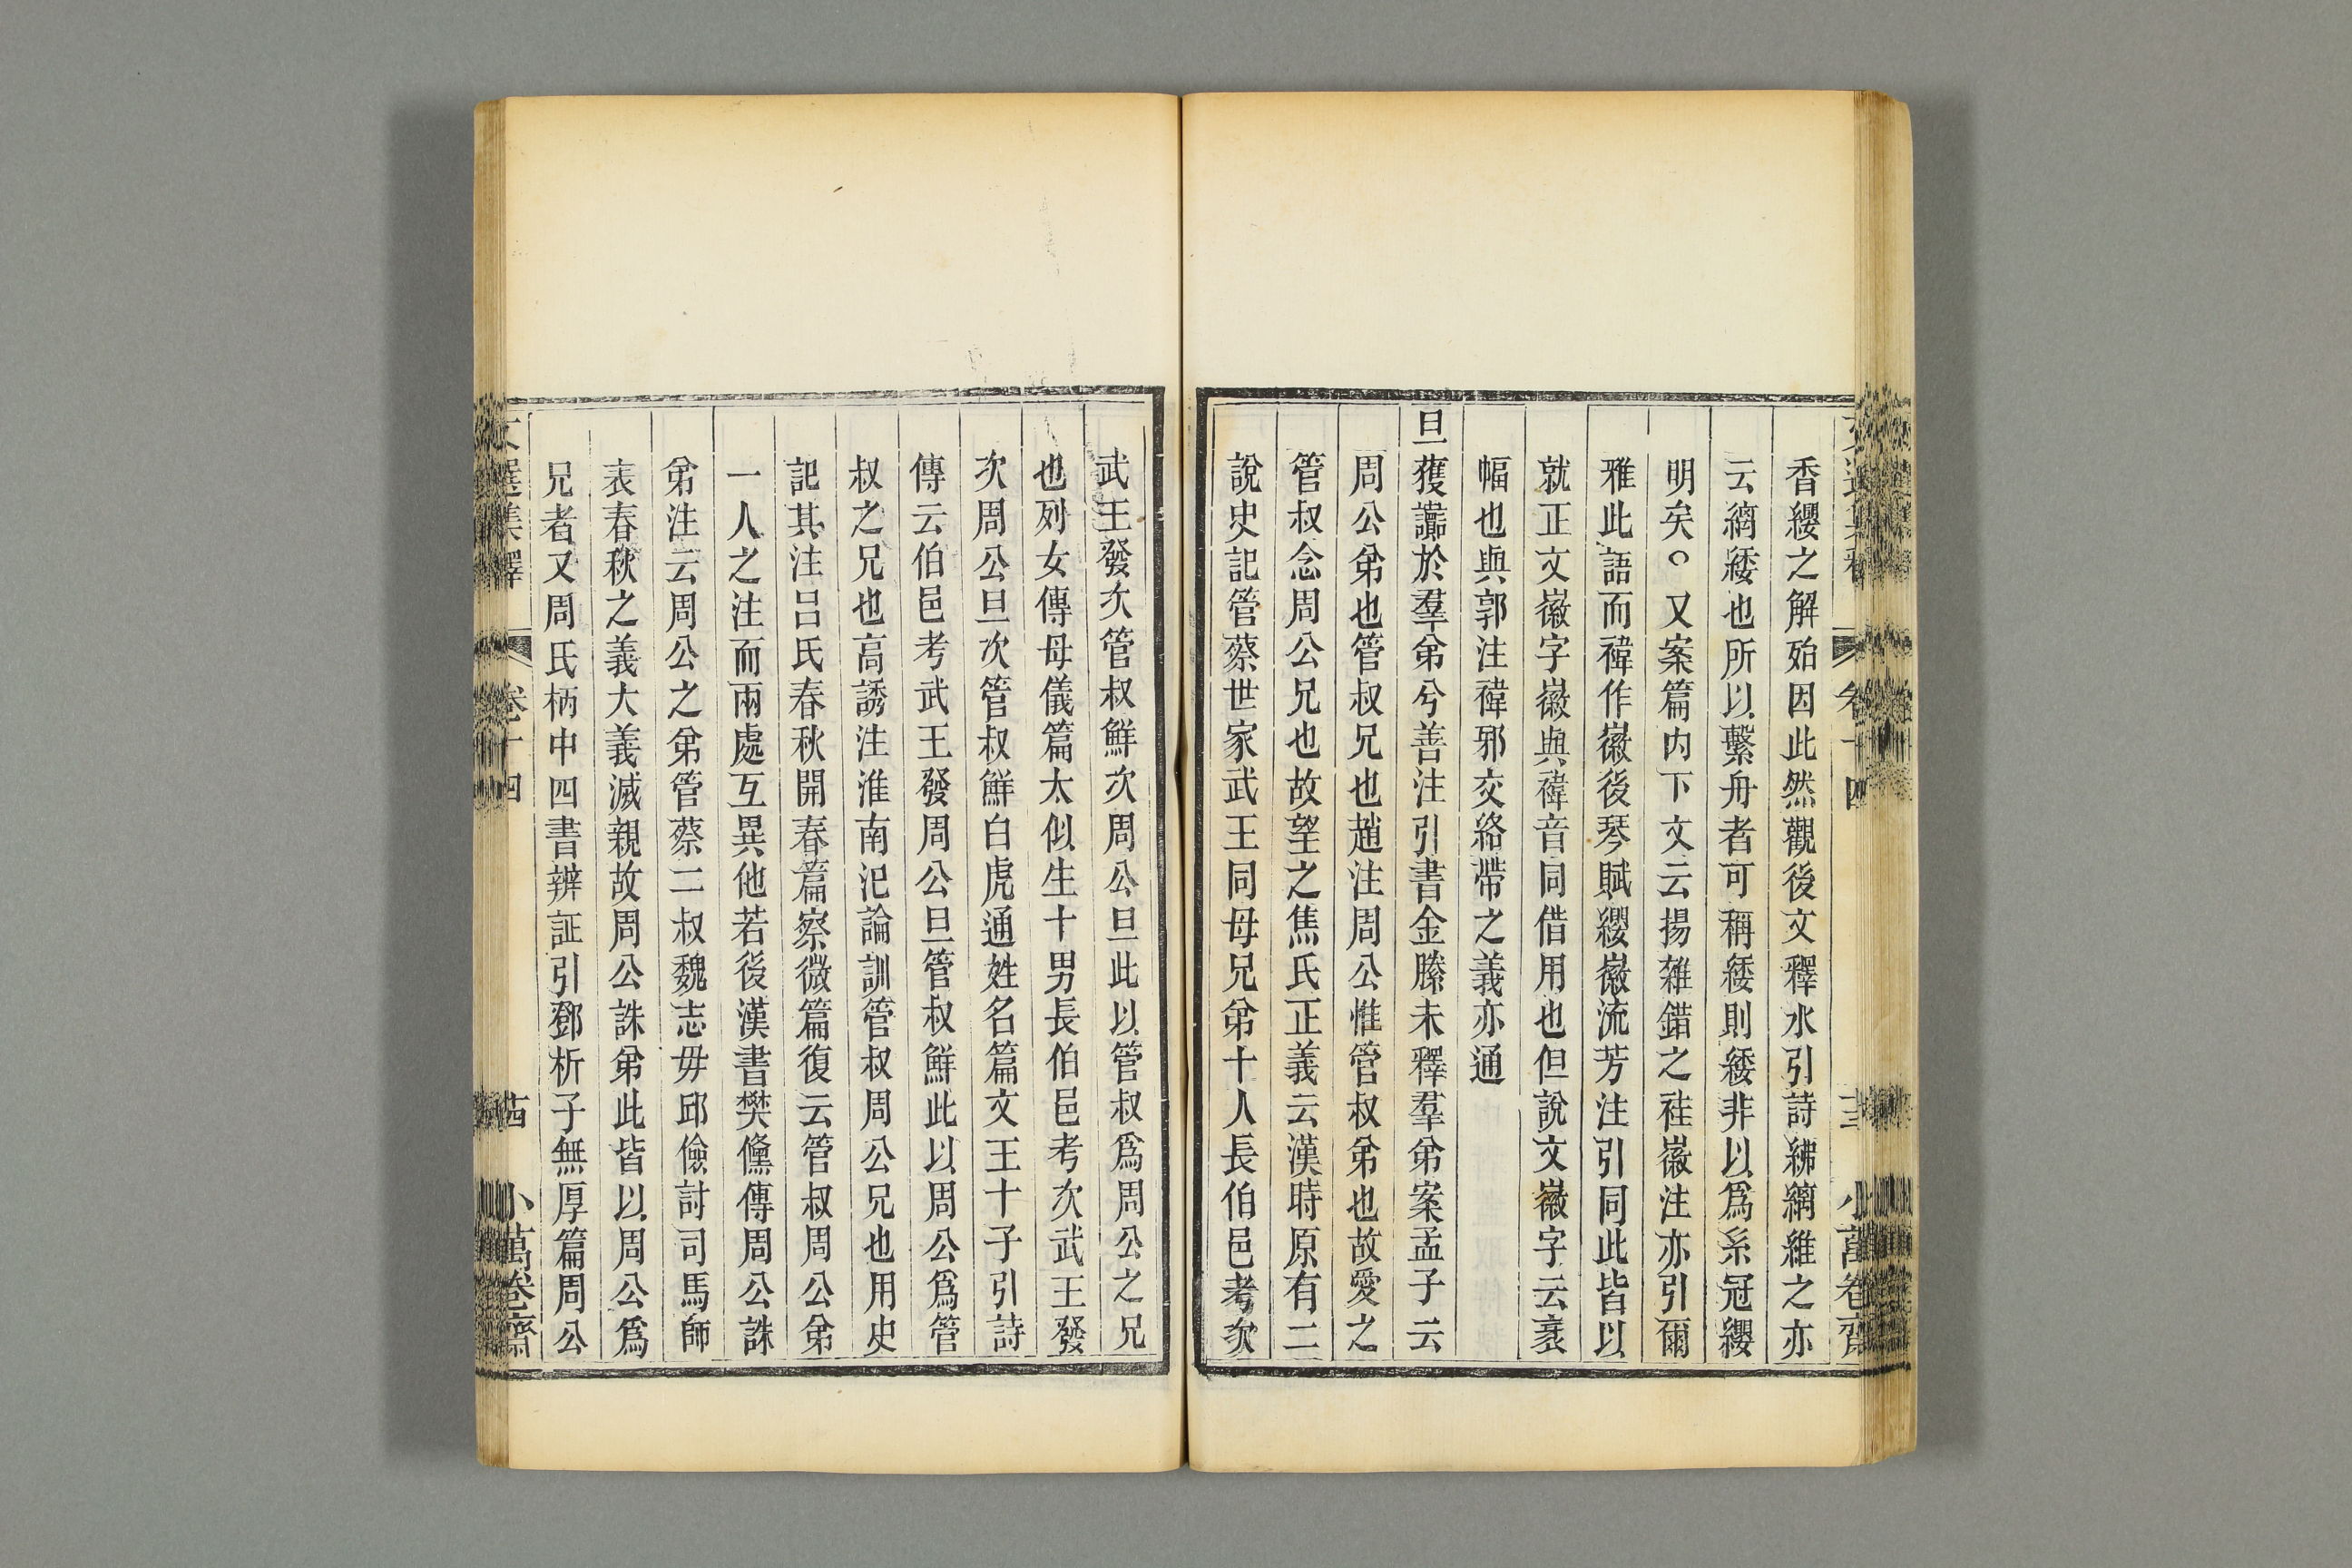 香纓之解殆因此然觀後文釋水引詩紼縭維之亦
云縭緌也所以繫舟者可稱緌則緌非以爲系冠纓
明矣○又案篇內下文云揚雜錯之袿徽注亦引爾
雅此語而褘作徽後琴賦纓徽流芳注引同此皆以
就正文徽字徽與褘音同借用也但說文徽字云衺
幅也與郭注褘邪交絡帶之義亦通
旦獲讟於羣弟兮善注引書金縢未釋羣弟案孟子云
周公弟也管叔兄也趙注周公惟管叔弟也故愛之
管叔念周公兄也故望之焦氏正義云漢時原有二
說史記管蔡世家武王同母兄弟十人長伯邑考次
武王發次管叔鮮次周公旦此以管叔爲周公之兄
也列女傳母儀篇太似生十男長伯邑考次武王發
次周公旦次管叔鮮白虎通姓名篇文王十子引詩
傳云伯邑考武王發周公旦管叔鮮此以周公爲管
叔之兄也高誘注淮南氾論訓管叔周公兄也用史
記其注呂氏春秋開春篇察微篇復云管叔周公弟
一人之注而兩處互異他若後漢書樊儵傳周公誅
弟注云周公之弟管蔡二叔魏志毋邱儉討司馬師
表春秋之義大義滅親故周公誅弟此皆以周公爲
兄者又周氏柄中四書辨証引鄧析子無厚篇周公
文選集釋 卷十四 十四 小萬卷齋